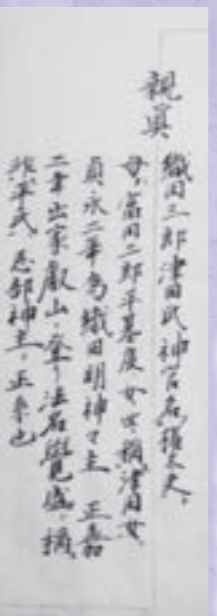 親眞
織田三郎津田氏神官名權太夫、
母、富田二郎平基度女、世稱津田女、
貞永二年為織田明神々主 正嘉
二年出家叡山ニ登リ法名覺盛、稱
猴平氏、忌部神主、正系也